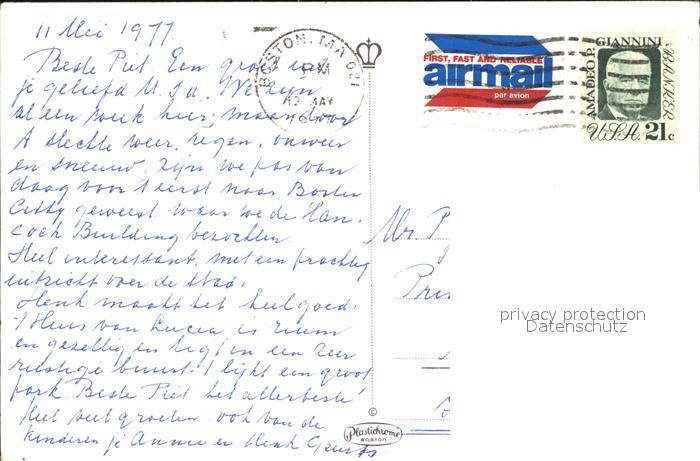 11 Mei 1977.
Beste Piet. Een groet uit
je geliefd U.S.A. We zijn
al een week hier, maar door
't slechte weer, regen, onweer
en sneeuw, zijn we pas van
daag voor 't eerst naar Boston
Citty geweest waar we de Han-
cock Building bezochten.
Heel interessant, met een prachtig
uitzicht over de stad.
Henk maakt het heel goed.
't Huis van Lucia is ruim
en gezellig en ligt in een zeer
rustige buurt. 't lijkt een groot
park. Beste Piet het allerbeste
Heel veel groeten ook van de
kinderen je Annie en Henk
BOSTON, MA 021
PM
12 MAY
FIRST, FAST AND RELIABLE
airmail
par avion
AMADEO P. GIANNINI
BANKER
U.S.A. 21c
Mr. P
privacy protection
Datenschutz
©
Plastichrome
BOSTON